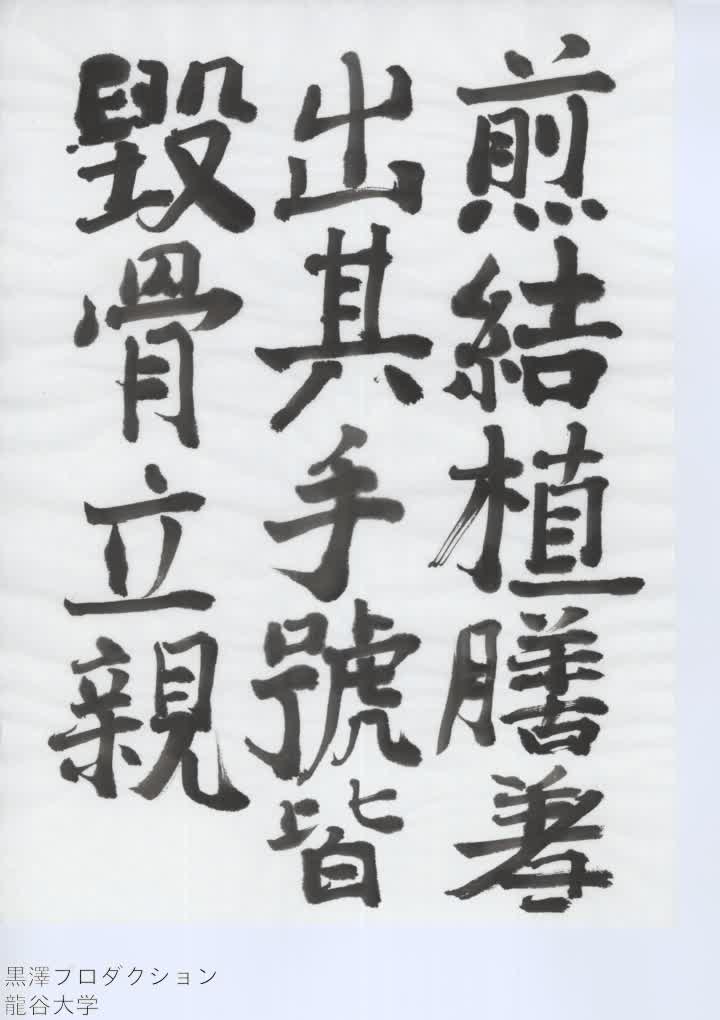 煎結植膳羞
出其手號皆
毀骨立親
黒澤プロダクション
龍谷大学